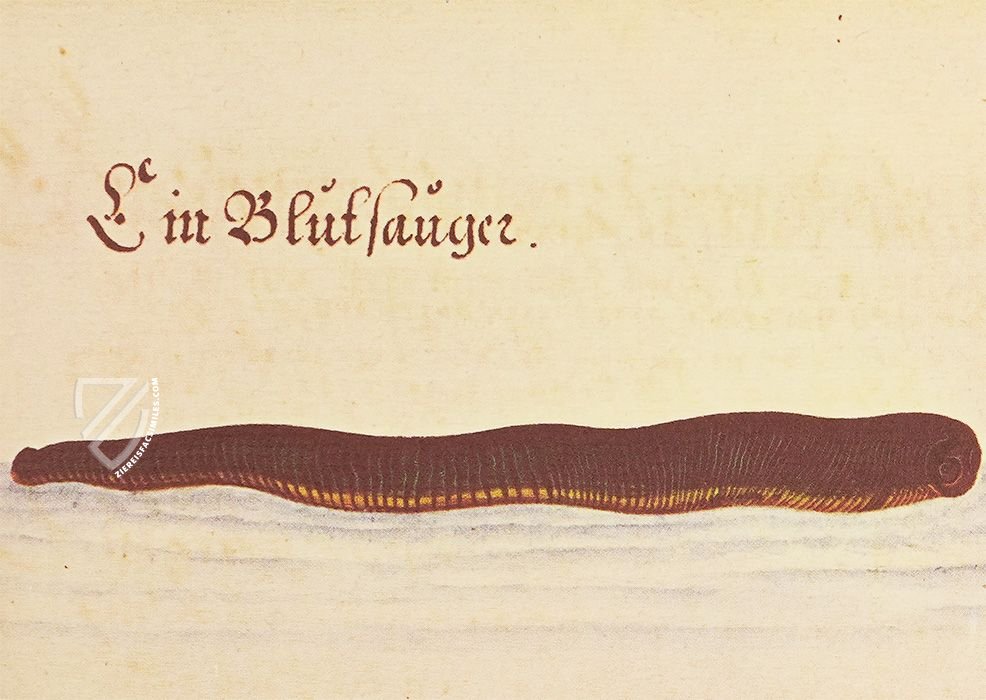 Ein Blutsauger.
ZIEREISFACSIMILES.COM